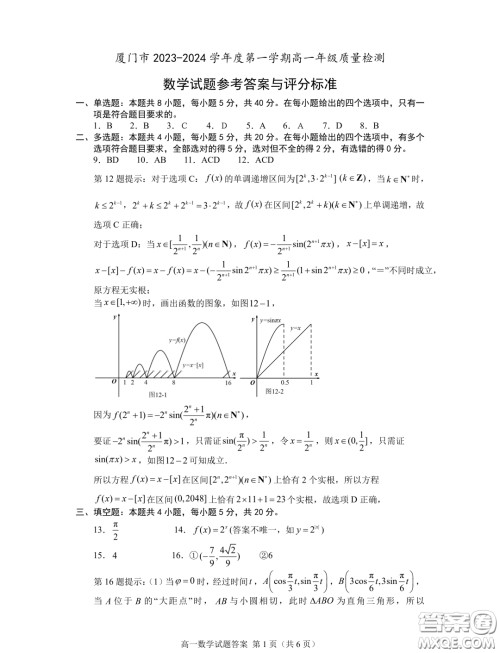 厦门市 2023-2024 学年度第一学期高一年级质量检测
数学试题参考答案与评分标准
一、单选题：本题共 8 小题，每小题 5 分，共 40 分。在每小题给出的四个选项中，只有一
项是符合题目要求的。
1. B 2. B 3. A 4. C 5. A 6. D 7. D 8. B
二、多选题：本题共 4 小题，每小题 5 分，共 20 分。在每小题给出的四个选项中，有多个
选项符合题目要求，全部选对的得 5 分，选对但不全的得 2 分，有选错的得 0 分。
9. BD 10. AB 11. ACD 12. ACD
第 12 题提示：对于选项 C：f(x) 的单调递增区间为[2^k,3·2^{k-1}] (k∈Z)，当 k∈N* 时，
k≤2^{k-1}，2^k+k≤2^k+2^{k-1}=3·2^{k-1}，故 f(x) 在区间[2^k,2^k+k)(k∈N*) 上单调递增，故选
项 C 正确；
对于选项 D：当 x∈[1/2^{n+1},1/2^n)(n∈N)，f(x)=-1/2^{n+1} sin(2^{n+1}πx)，x-[x]=x，
x-[x]-f(x)=x-f(x)=x-(-1/2^{n+1} sin 2^{n+1}πx)≥1/2^{n+1}(1+sin 2^{n+1}πx)≥0，“=”不同时成立，
原方程无实根；
当 x∈[1,+∞) 时，画出函数的图象，如图12-1，
y y=f(x) y=x-[x] O 1 2 4 8 16 x 图12-1
y y=sinπx y=x O 0.5 1 x 图12-2
因为 f(2^n+1)=-2^n sin((2^n+1)/2^n π)(n∈N*)，
要证-2^n sin((2^n+1)/2^n π)>1，只需证 sin(π/2^n)>1/2^n，令 x=1/2^n，则 x∈(0,1/2]，只需证
sin(πx)>x，如图12-2可知成立.
所以方程 f(x)=x-[x] 在区间[2^n,2^{n+1})(n∈N*) 上恰有 2 个实根，所以方程
f(x)=x-[x] 在区间(0,2048] 上恰有 2×11+1=23 个实根，故选项 D 正确。
三、填空题：本大题共 4 小题，每小题 5 分，共 20 分。
13. π/2 14. f(x)=2^x (答案不唯一，如 y=2^{|x|})
15. 4 16. ①(-7/9,4√2/9) ②6
第 16 题提示：(1) 当 φ=0 时，经过时间 t，A(cos π/3 t,sin π/3 t)，B(3cos π/6 t,3sin π/6 t)，
当 A 位于 B 的“大距点”时，AB 与小圆相切，此时 △ABO 为直角三角形，所以
高一数学试题答案 第 1 页（共 6 页）